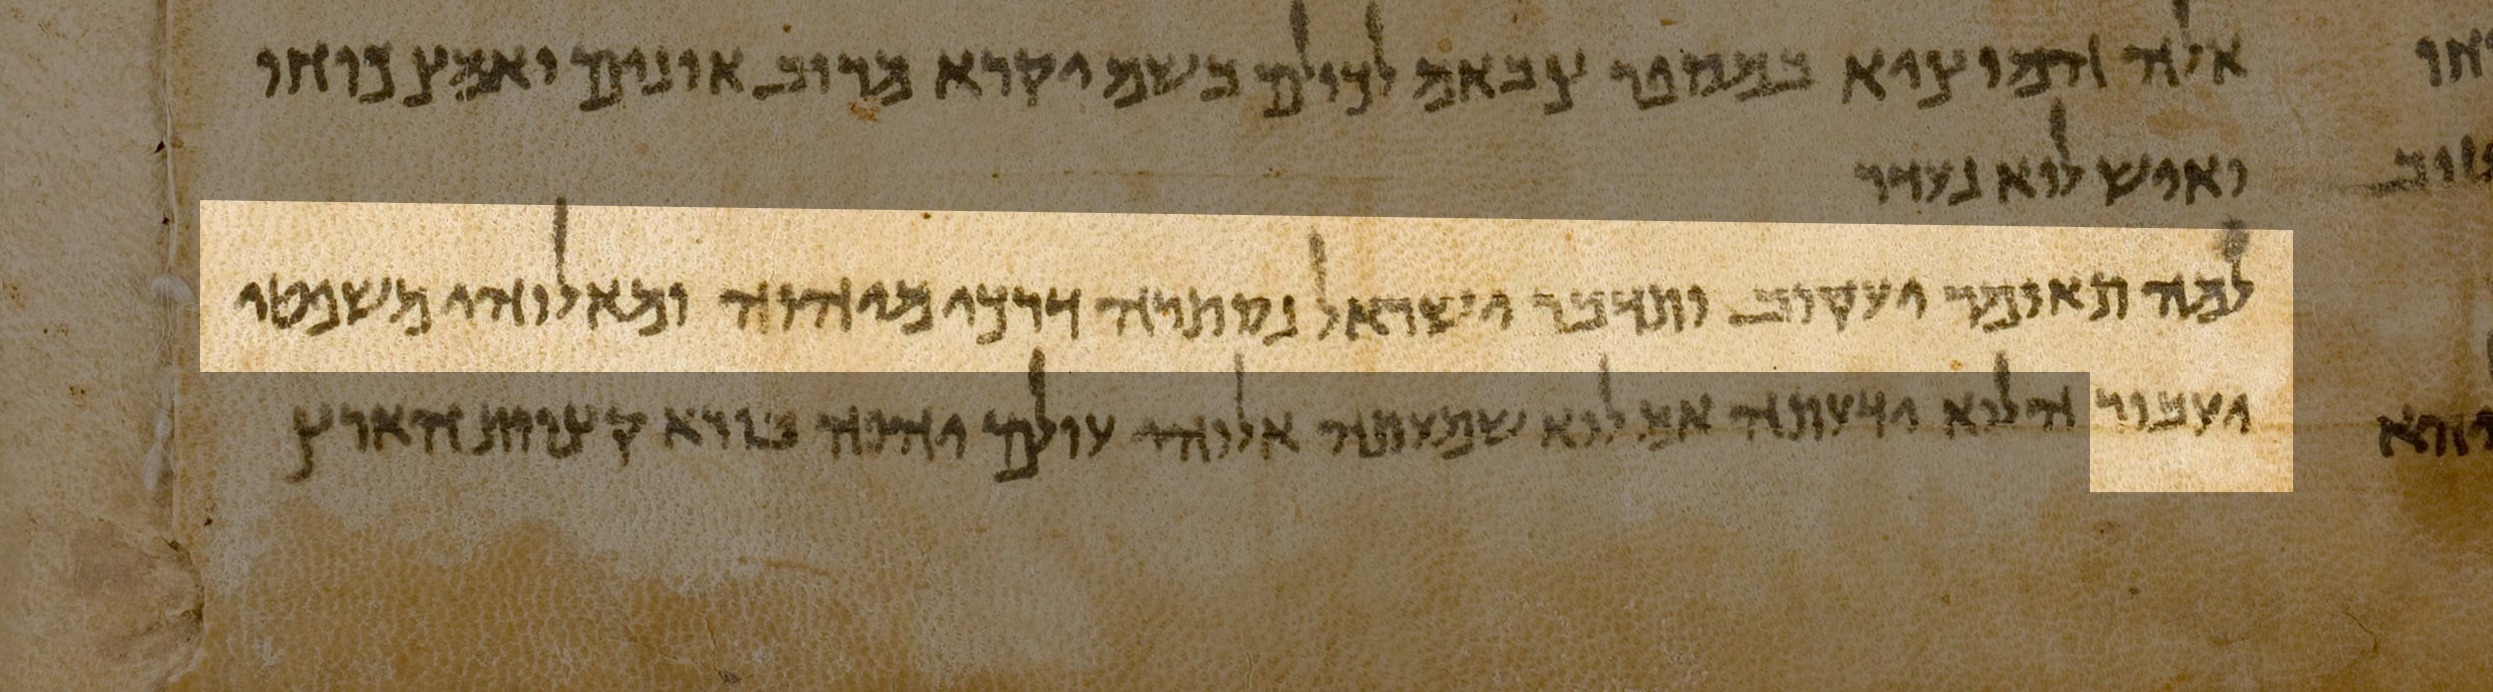 אלה המוציא במספר צבאם לכולם בשם יקרא מרוב אונים ואמץ כוחו
ואיש לוא נעדר
למה תאומר יעקוב ותדבר ישראל נסתרה דרכי מיהוה ומאלוהי משפטי
יעבור הלוא ידעתה אם לוא שמעתה אלוהי עולם יהוה בורא קצוות הארץ